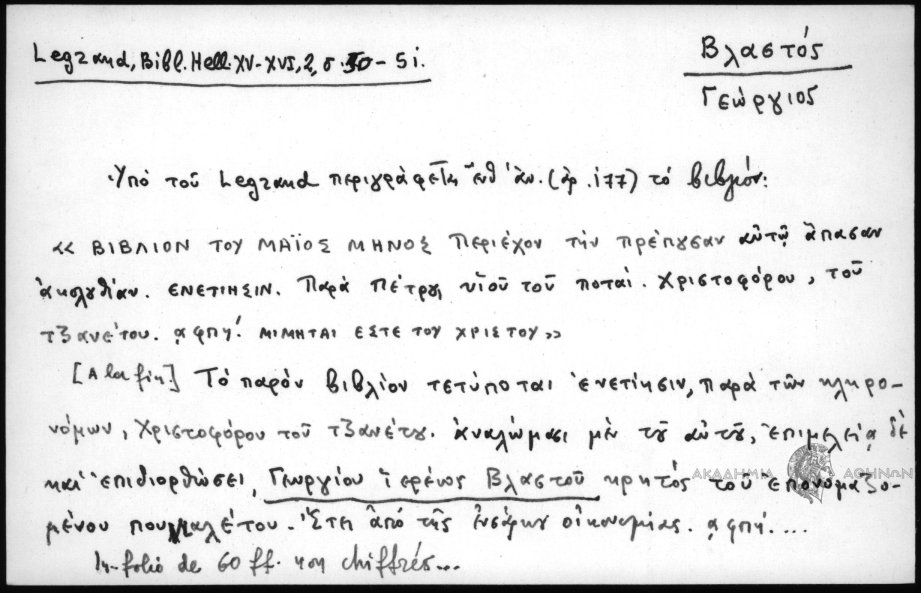 Legrand, Bibl. Hell. XV-XVI, 2, σ 50-51.
Βλαστός
Γεώργιος
Ὑπό τοῦ Legrand περιγράφεται ἔνθ' ἀν. (ἀρ. 177) τό βιβλίον:
« ΒΙΒΛΙΟΝ ΤΟΥ ΜΑΪΟΣ ΜΗΝΟΣ περιέχον τήν πρέπουσαν αὐτῷ ἅπασαν
ἀκολουθίαν. ΕΝΕΤΙΗΣΙΝ. Παρά Πέτρου, υἱοῦ τοῦ ποταί. Χριστοφόρου, τοῦ
τζανέτου. αφπη! ΜΙΜΗΤΑΙ ΕΣΤΕ ΤΟΥ ΧΡΙΣΤΟΥ»
[A la fin] Τό παρόν βιβλίον τετύποται ἐνετίησιν, παρά τῶν κληρο-
νόμων, Χριστοφόρου τοῦ τζανέτου. ἀναλώμασι μέν τοῦ αὐτοῦ, ἐπιμελείᾳ δέ
καί ἐπιδιορθώσει, Γεωργίου ἱερέως Βλαστοῦ κρητός τοῦ ἐπονομαζο-
μένου πουμαλέτου. Ἔτει ἀπό τῆς ἐνσάρκου οἰκονομίας. αφπή....
In-folio de 60 ff. non chiffrés...
ΑΚΑΔΗΜΙΑ ΑΘΗΝΩΝ